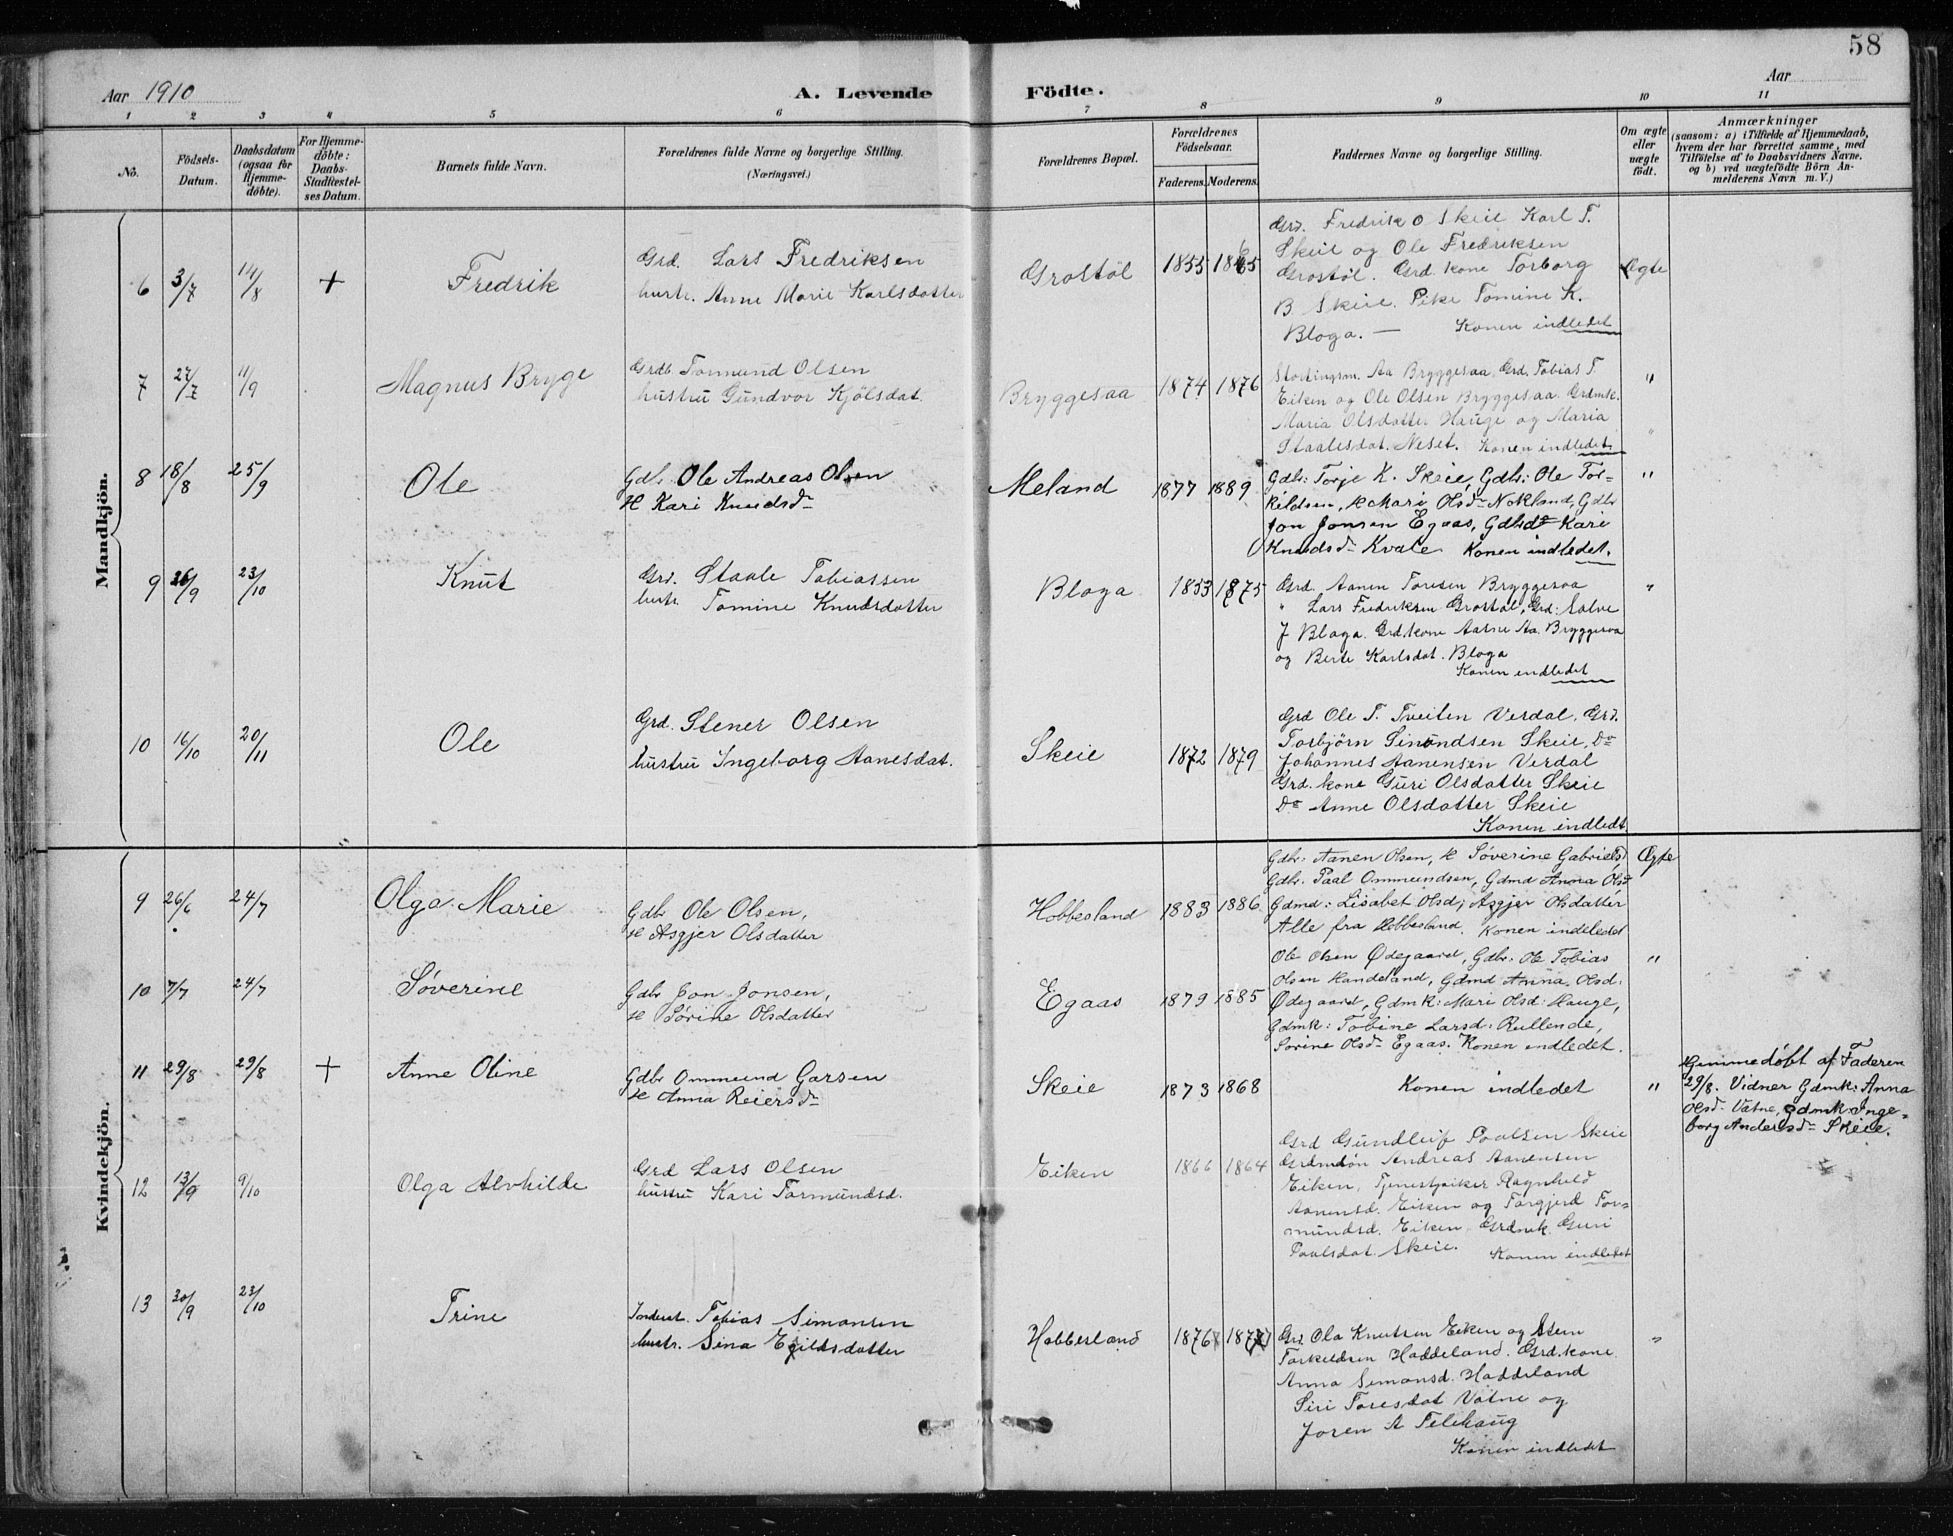 58
Aar 1910
A. Levende Födte.
Aar
1 2 3 4 5 6 7 8 9 10 11
No.
Födsels-Datum.
Daabsdatum (ogsaa for Hjemme-döbte).
For Hjemme-döbte: Daabs-Stadfæstel-ses Datum.
Barnets fulde Navn.
Forældrenes fulde Navne og borgerlige Stilling.
(Næringsvei.)
Forældrenes Bopæl.
Forældrenes Födselsaar.
Faderens. Moderens.
Faddernes Navne og borgerlige Stilling.
Om ægte eller uægte födt.
Anmærkninger
(saasom: a) i Tilfælde af Hjemmedaab, hvem der har forrettet samme, med Tilföielse af to Daabsvidners Navne, og b) ved uægtefödte Börn An-melderens Navn m. V.)
Mandkjön.
6 3/7 14/8 + Fredrik
Grd. Lars Fredriksen
hustr. Anne Marie Karlsdatter
Grostøl 1855 1865
Grd. Fredrik O Skeie Karl T.
Skeie og Ole Fredriksen
Grostøl. Grd. kone Torborg
B Skeie. Pike Tomine K.
Bloga. — Konen indledet
Ægte
7 27/7 11/9 Magnus Bryge
Grdb. Tormund Olsen
hustru Gundvor Kjölsdat.
Bryggesaa 1874 1876
Aa Bryggesaa, Grd. Tobias T.
Eiken og Ole Olsen Bryggesaa. Grdmk.
Maria Olsdatter Hauge og Maria
Staalesdat. Neset. Konen indledet
"
8 18/8 25/9 Ole
Gdbr Ole Andreas Olsen
H Kari Knudsdr
Meland 1877 1889
Gdbr: Torje K. Skeie, Gdbr: Ole Tor=
kildsen, H Mari Olsdr Nokland, Gdbr
Jon Jonsen Egaas, Gdbsdr Kari
Knudsdr Kvale Konen indledet.
"
9 26/9 23/10 Knut
Grd. Staale Tobiassen
hustr. Tomine Knudsdatter
Bloga 1853 1875
Grd. Aanen Toresen Bryggesaa
" Lars Fredriksen Grostøl, Grd: Salve
J Bloga. Grd.kone Aasne Aa. Bryggesaa
og Berte Karlsdat. Bloga
Konen indledet
"
10 16/10 20/11 Ole
Grd. Stener Olsen
hustru Ingeborg Aanesdat.
Skeie 1872 1879
Grd Ole T. Tveiten Verdal. Grd.
Torbjörn Simundsen Skeie, Do
Johannes Aanensen Verdal
Grd. kone Guri Olsdatter Skeie
Do Anne Olsdatter Skeie
Konen indledt
Kvindekjön.
9 26/6 24/7 Olga Marie
Gdbr Ole Olsen,
H Asgjer Olsdatter
Hobbesland 1883 1886
Gdbr: Aanen Olsen, H Søverine Gabrielsd
Gdbr. Paal Ommundsen, Gdmd Anna Olsd
Gdmd: Lisabet Olsd; Asgjer Olsdatter
Alle fra Hobbesland. Konen indledet
Ægte
10 7/7 24/7 Søverine
Gdbr Jon Jonsen,
H Sørine Olsdatter
Egaas 1879 1885
Ole Olsen Ødegaard, Gdbr. Ole Tobias
Olsen Handeland, Gdmd Anna Olsd:
Ødegaard, Gdmk: Mari Olsd: Hauge,
Gdmk: Tobine Larsd: Rullende,
Sorine Olsdr Egaas. Konen indledet.
"
11 29/8 29/8 + Anne Oline
Gdbr Ommund Garsen
H Anna Reiersdr
Skeie 1873 1868
Konen indledet
"
Hjemmedøbt af Faderen
29/8. Vidner Gdmk: Anna
Olsdr Vatne, Gdmk: Inge=
borg Andersdr Skeie.
12 13/9 9/10 Olga Alvhilde
Grd Lars Olsen
hustru Kari Tormundsd.
Eiken 1866 1864
Grd Gundleif Paalsen Skeie
Andreas Aanensen
Eiken, Tjenestpiker Ragnhild
Aanensd. Eiken og Torgjerd Tor=
mundsd. Eiken. Grdmk. Guri
Paalsdat. Skeie. Konen indledet
13 30/9 23/10 Trine
Tobias Simonsen
hustr. Sina Egildsdatter
Hobbesland 1876
Grd Ola Knutsen Eiken og Sten
Torkeldsen Haddeland. Grd.kone
Anna Simonsd. Haddeland
Siri Toresdat Vatne og
Joren A Telehaug
Konen indledet
"